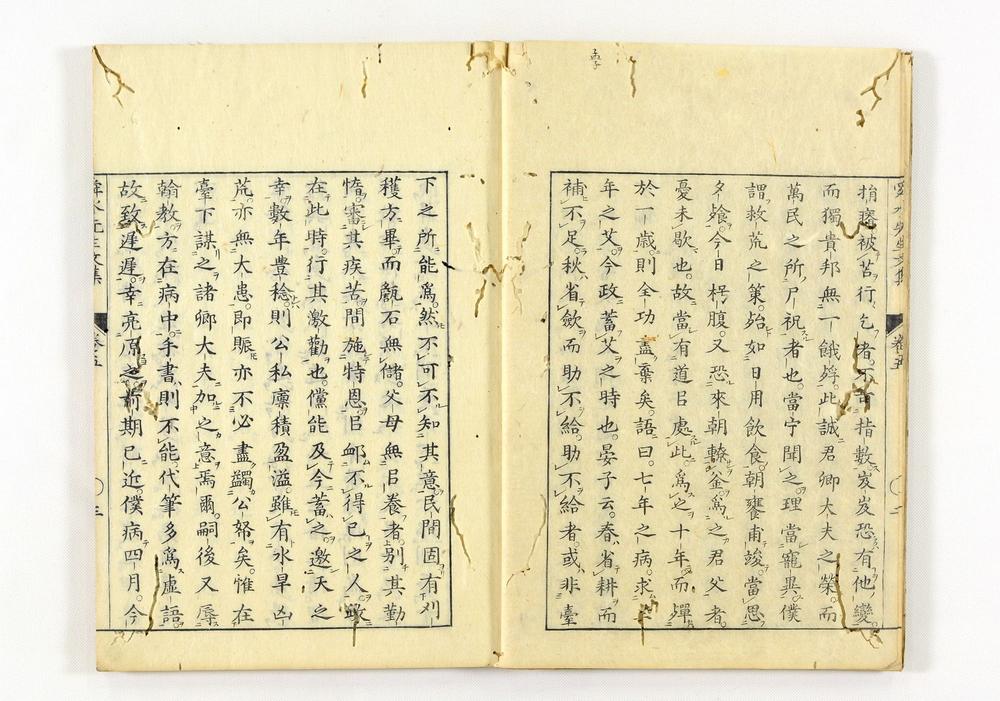 孟子
舜水先生文集 卷五 二
捐瘠被苫行乞者不可指數岌岌恐有他變
而獨貴邦無一餓殍此誠君卿大夫之榮而
萬民之所尸祝者也當宁聞之理當寵異僕
謂救荒之策殆如日用飲食朝饔甫竣當思
夕飱今日枵腹又恐來朝轑釜為之君父者
憂未歇也故當有道㠯處此為之十年而殫
於一歲則全功盡棄矣語曰七年之病求三
年之艾今政蓄艾之時也晏子云春省耕而
補不足秋省斂而助不給助不給者或非臺
下之所能為然不可不知其意民間固有刈
穫方畢而甔石無儲父母無㠯養者別其勤
惰審其疾苦間施特恩㠯卹不得已之人
在此時行其激勸也儻能及今蓄之邀天之
幸數年豊稔則公私廩積盈溢雖有水旱凶
荒亦無大患即賑亦不必盡蠲公帑矣惟在
臺下謀之諸卿大夫加之意焉爾嗣後又辱
翰教方在病中手書則不能代筆多為虛語
故致遲遲幸亮原之前期已近僕病四月今
舜水先生文集 卷五 三